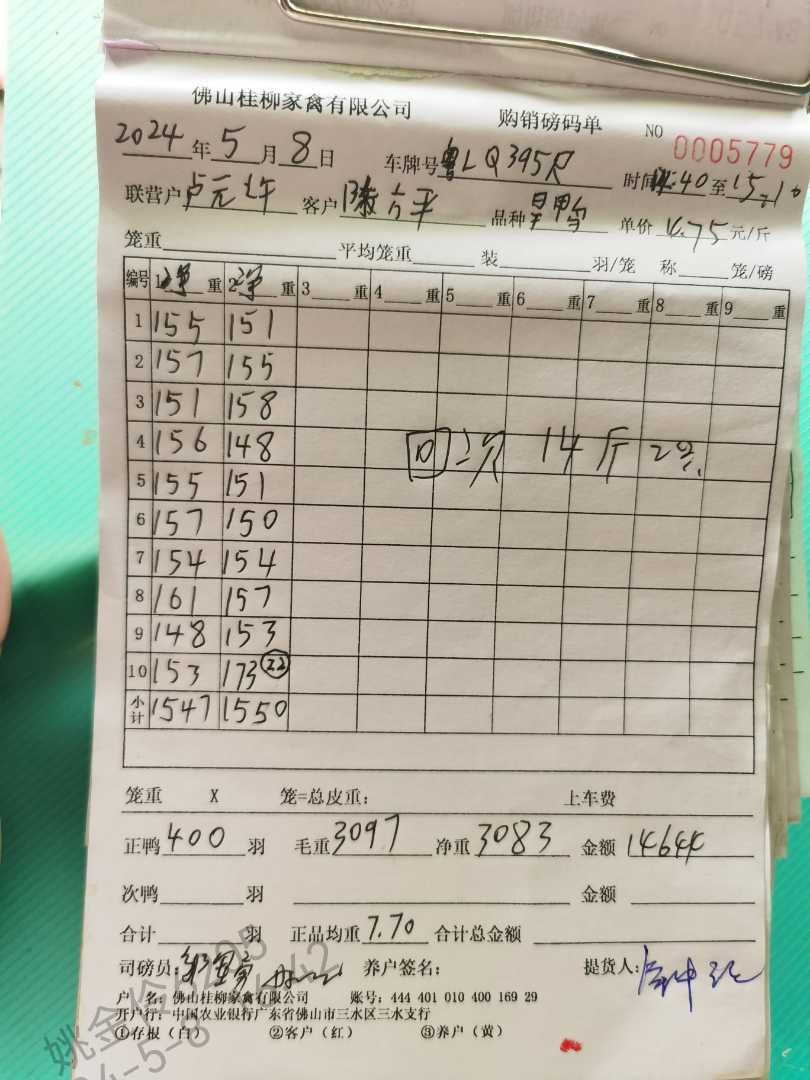 佛山桂柳家禽有限公司 购销磅码单 NO 0005779
2024年5月8日 车牌号粤LQ395R 时间:40至15:10
联营户卢元 客户 陈方平 品种 单价 4.75元/斤
笼重 平均笼重 装 羽/笼 称 笼/磅
编号 1净重 2净重 3 重 4 重 5 重 6 重 7 重 8 重 9 重
1 155 151
2 157 155
3 151 158
4 156 148 回 14斤 2%
5 155 151
6 157 150
7 154 154
8 161 157
9 148 153
10 153 173 22
小计 1547 1550
笼重 X 笼=总皮重: 上车费
正鸭 400 羽 毛重 3097 净重 3083 金额 14644
次鸭 羽 金额
合计 羽 正品均重 7.70 合计总金额
司磅员: 养户签名: 提货人:
户 名: 佛山桂柳家禽有限公司 账号: 444 401 010 400 169 29
开户行: 中国农业银行广东省佛山市三水区三水支行
①存根(白) ②客户(红) ③养户(黄)